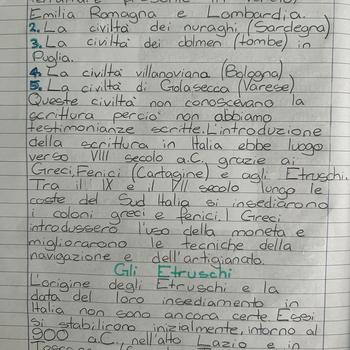 Emilia Romagna e Lombardia.
2. La civiltà dei nuraghi (Sardegna)
3. La civiltà dei dolmen (tombe) in
Puglia.
4. La civiltà villanoviana (Bologna)
5. La civiltà di Golasecca (Varese)
Queste civiltà non conoscevano la
scrittura perciò non abbiamo
testimonianze scritte. L'introduzione
della scrittura in Italia ebbe luogo
verso VIII secolo a.C. grazie ai
Greci, Fenici (Cartagine) e agli Etruschi.
Tra il IX e il VII secolo lungo le
coste del Sud Italia si insediarono
i coloni greci e fenici. I Greci
introdussero l'uso della moneta e
migliorarono le tecniche della
navigazione e dell'artigianato.
Gli Etruschi
L'origine degli Etruschi e la
data del loro insediamento in
Italia non sono ancora certe. Essi
si stabilirono inizialmente, intorno al
900 a.C., nell'alto Lazio e in